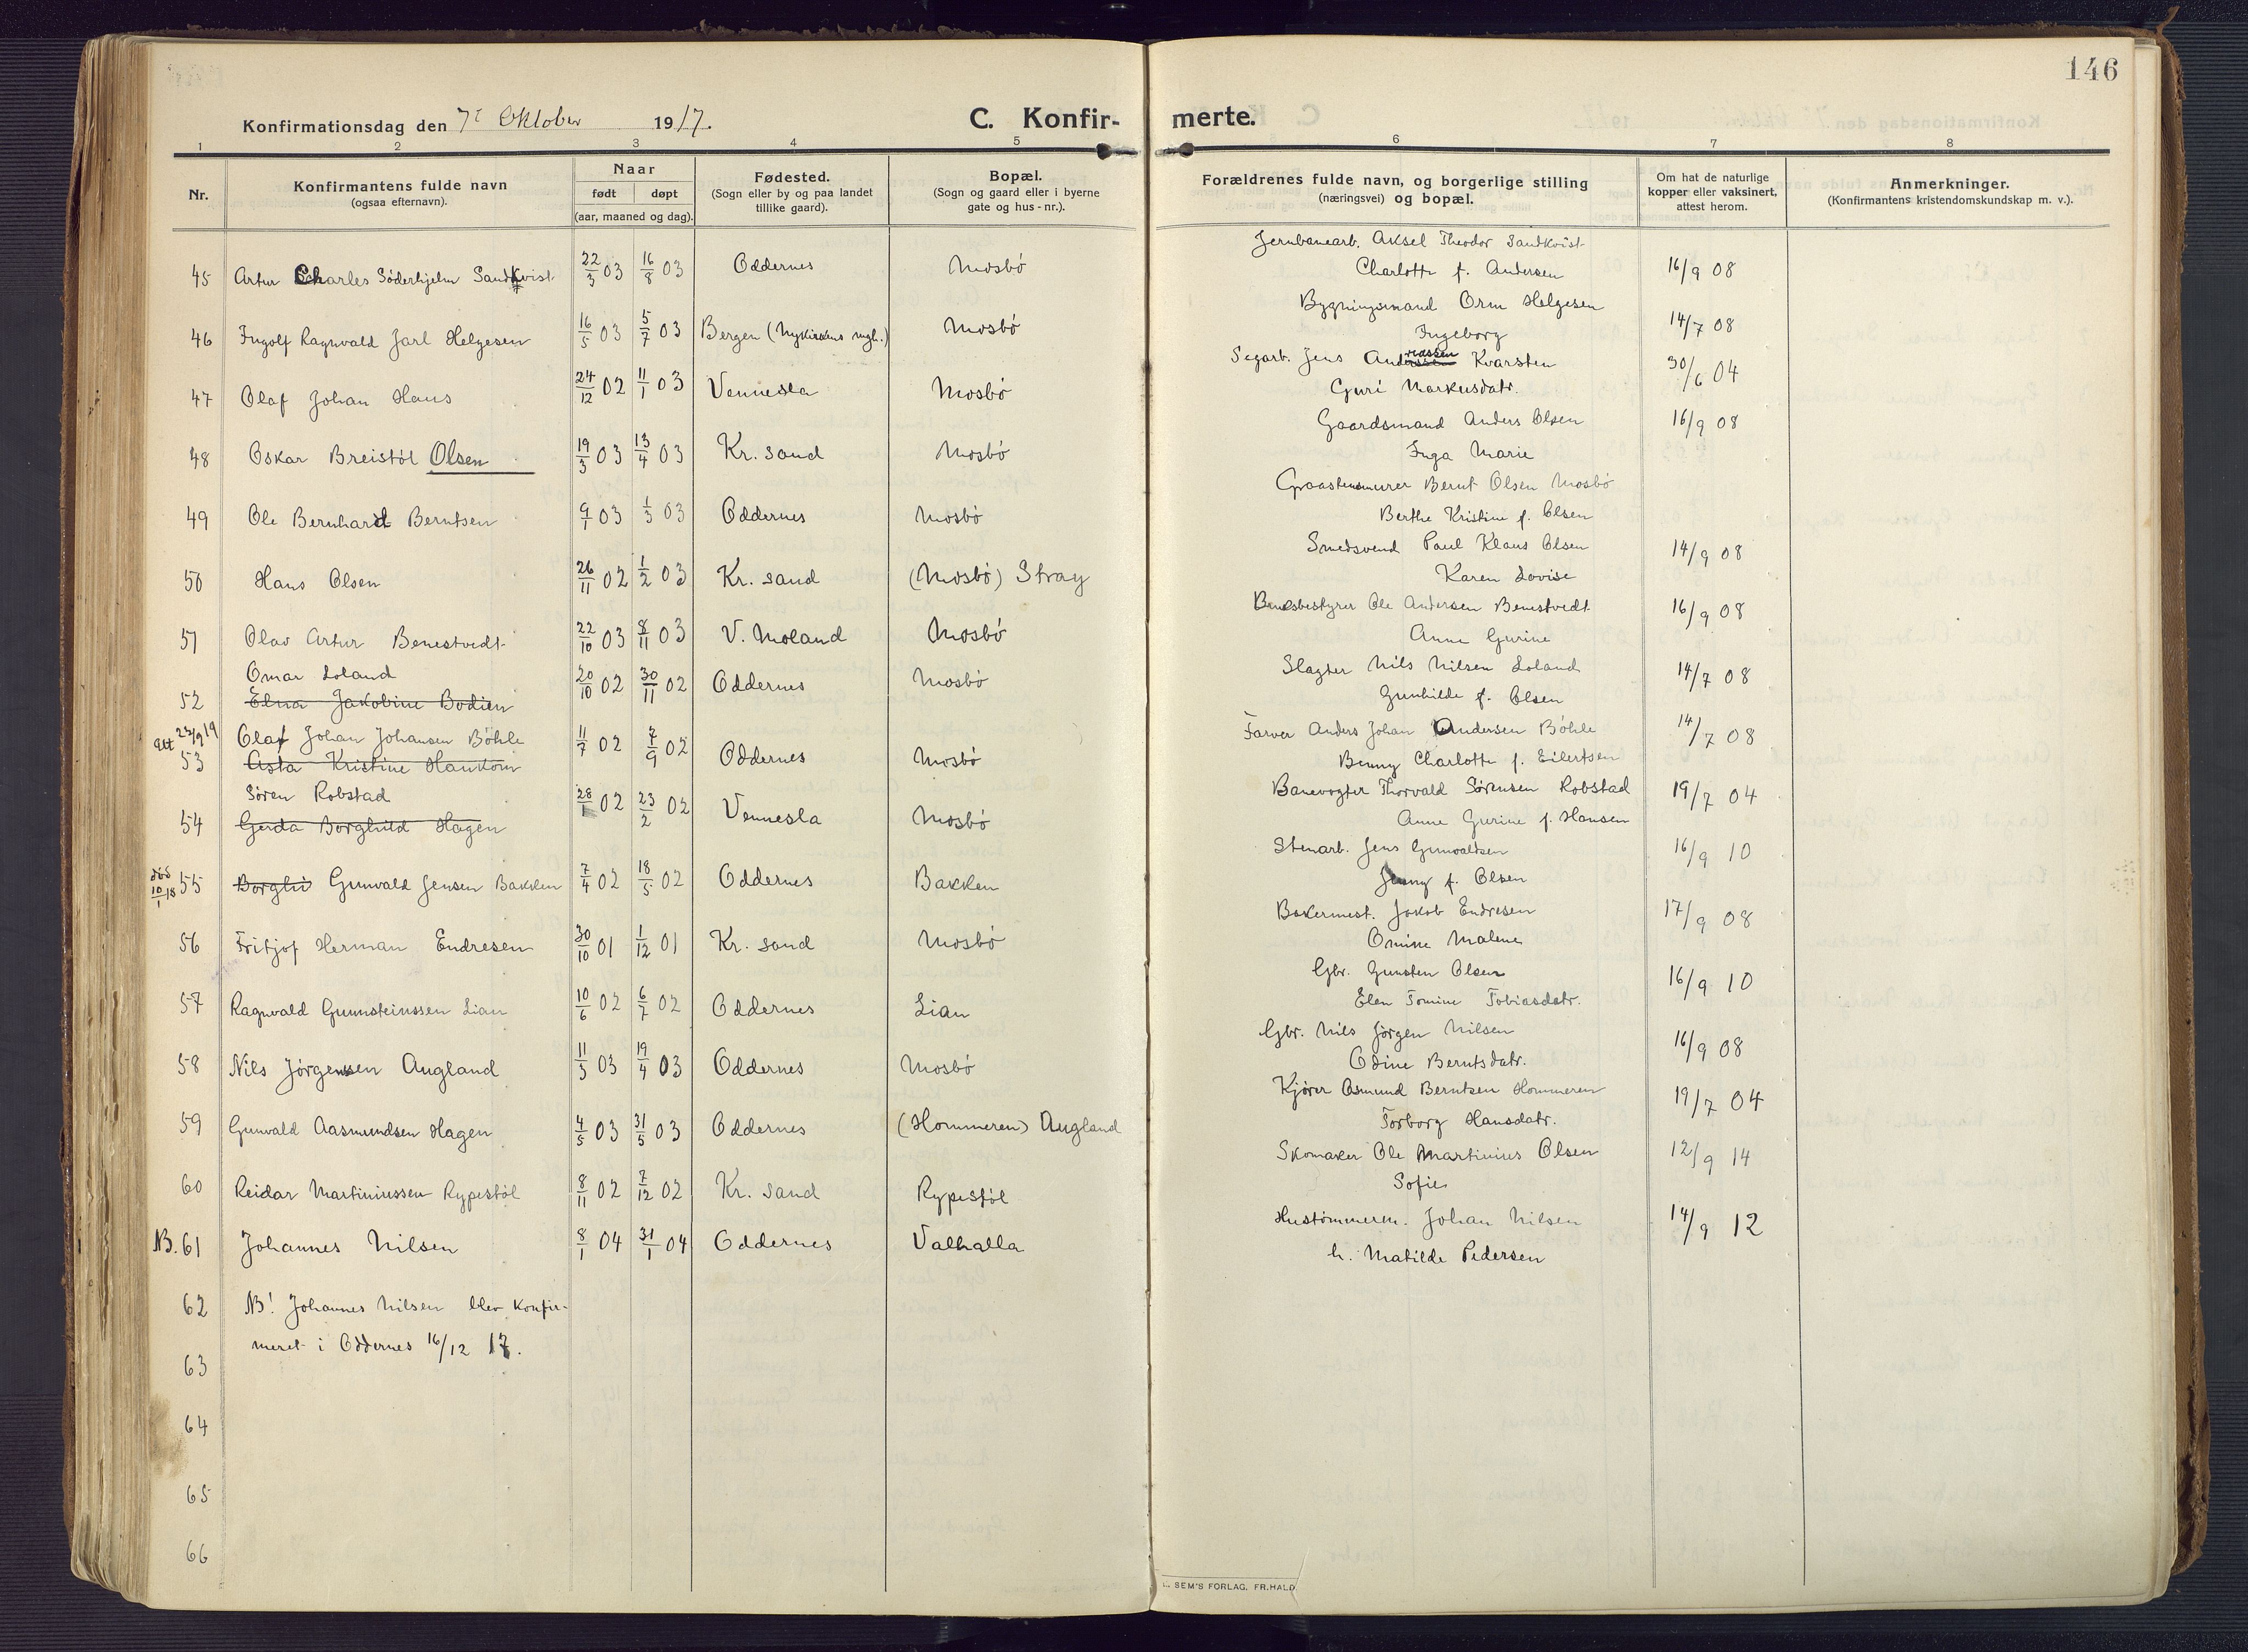 146
Konfirmationsdag den 7de Oktober 1917.
C. Konfir- merte.
1 2 3 4 5 6 7 8
Nr.
Konfirmantens fulde navn
(ogsaa efternavn).
Naar
født døpt
(aar, maaned og dag).
Fødested.
(Sogn eller by og paa landet
tillike gaard).
Bopæl.
(Sogn og gaard eller i byerne
gate og hus-nr.).
Forældrenes fulde navn, og borgerlige stilling
(næringsvei) og bopæl.
Om hat de naturlige
kopper eller vaksinert,
attest herom.
Anmerkninger.
(Konfirmantens kristendomskundskap m. v.).
Jernbanearb. Aksel Theodor Sandkvist
45 Artur Charles Söderhjelm Sandkvist 22/3 03 16/8 03 Oddernes Mosbö Charlotte f. Andersen 16/9 08
Bygningsmand Orm Helgesen
46 Ingolf Ragnvald Jarl Helgesen 16/5 03 5/7 03 Bergen (Nykirkens mgh.) Mosbö Ingeborg 14/7 08
Segarb. Jens Andreassen Kvarsten
47 Olaf Johan Hans 24/12 02 11/1 03 Vennesla Mosbö Guri Markusdatr. 30/6 04
Gaardsmand Anders Olsen
48 Oskar Breistöl Olsen 19/3 03 13/4 03 Kr. sand Mosbö Inga Marie 16/9 08
Graastensmurer Bernt Olsen Mosbö
49 Ole Bernhard Berntsen 9/1 03 1/3 03 Oddernes Mosbö Berthe Kristine f. Olsen
Smedsvend Paul Klaus Olsen
50 Hans Olsen 26/11 02 1/2 03 Kr. sand (Mosbö) Stray Karen Lovise 14/9 08
Bruksbestyrer Ole Andersen Benestvedt
51 Olav Artur Benestvedt 22/10 03 8/11 03 V. Moland Mosbö Anne Gurine 16/9 08
Omar Loland Slagter Nils Nilsen Loland
52 Elna Jakobine Bodien 20/10 02 30/11 02 Oddernes Mosbö Gunhilde f. Olsen 14/7 08
att 23/9 19 Olaf Johan Johansen Böhle Farver Anders Johan Andersen Böhle
53 Asta Kristine Hankom 11/7 02 7/9 02 Oddernes Mosbö Benny Charlotte f. Eilertsen 14/7 08
Sören Robstad Banevogter Thorvald Sörensen Robstad
54 Gerda Borghild Hagen 28/1 02 23/2 02 Vennesla Mosbö Anne Gurine f. Hansen 19/7 04
Stenarb. Jens Gunvaldsen
död 10/1 18 55 Borghi Gunvald Jensen Bakken 7/4 02 18/5 02 Oddernes Bakken Jenny f. Olsen 16/9 10
Bakermest. Jakob Endresen
56 Fritjof Herman Endresen 30/10 01 1/12 01 Kr. sand Mosbö Omine Malene 17/9 08
Gbr. Gunsten Olsen
57 Ragnvald Gunnsteinssen Lian 10/6 02 6/7 02 Oddernes Lian Elen Tomine Tobiasdatr. 16/9 10
Gbr. Nils Jörgen Nilsen
58 Nils Jörgensen Augland 11/3 03 19/4 03 Oddernes Mosbö Odine Berntsdatr. 16/9 08
Kjörer Osmund Berntsen Hommeren
59 Gunvald Aasmundsen Hagen 4/5 03 31/5 03 Oddernes (Hommeren) Augland Torborg Hansdatr. 19/7 04
Skomaker Ole Martinius Olsen
60 Reidar Martiniussen Rypestöl 8/11 02 7/12 02 Kr. sand Rypestöl Sofie 12/9 14
Hustömmerm. Johan Nilsen
NB. 61 Johannes Nilsen 8/1 04 31/1 04 Oddernes Valhalla h. Matilde Pedersen 14/9 12
62 NB! Johannes Nilsen blev konfir-
meret i Oddernes 16/12 17.
63
64
65
66
SEM'S FORLAG, FR.HALD